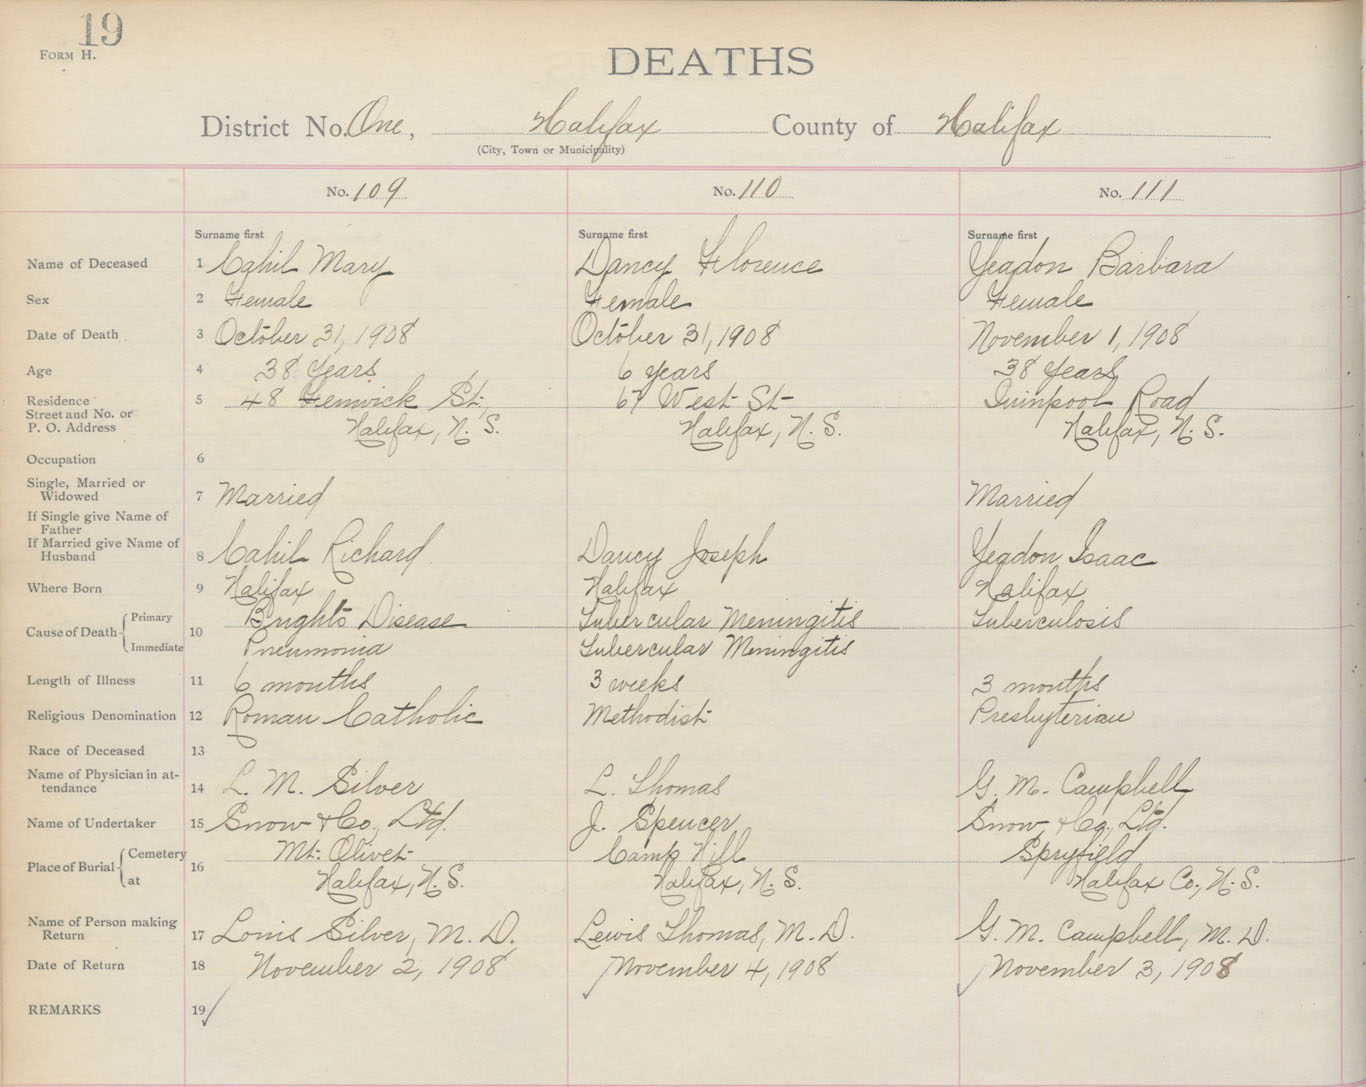 19
FORM H.
DEATHS
District No. One, Halifax County of Halifax
(City, Town or Municipality)
No. 109 No. 110 No. 111
Surname first Surname first Surname first
Name of Deceased 1 Cahil Mary Dancy Florence Yeadon Barbara
Sex 2 Female Female Female
Date of Death 3 October 31, 1908 October 31, 1908 November 1, 1908
Age 4 38 Years 6 years 38 years
Residence 5 48 Fenwick St, 67 West St Quinpool Road
Street and No. or
P. O. Address Halifax, N. S. Halifax, N. S. Halifax, N. S.
Occupation 6
Single, Married or
Widowed 7 Married Married
If Single give Name of
Father
If Married give Name of
Husband 8 Cahil Richard Dancy Joseph Yeadon Isaac
Where Born 9 Halifax Halifax Halifax
Primary Brights Disease Tubercular Meningitis Tuberculosis
Cause of Death 10
Immediate Pneumonia Tubercular Meningitis
Length of Illness 11 6 months 3 weeks 3 months
Religious Denomination 12 Roman Catholic Methodist Presbyterian
Race of Deceased 13
Name of Physician in at-
tendance 14 L. M. Silver L. Thomas G. M. Campbell
Name of Undertaker 15 Snow & Co., Ltd. J. Spencer Snow & Co., Ltd.
Cemetery Mt. Olivet Camp Hill Spryfield
Place of Burial 16
at Halifax, N. S. Halifax, N. S. Halifax Co., N. S.
Name of Person making
Return 17 Louis Silver, M. D. Lewis Thomas, M. D. G. M. Campbell, M. D.
Date of Return 18 November 2, 1908 November 4, 1908 November 3, 1908
REMARKS 19